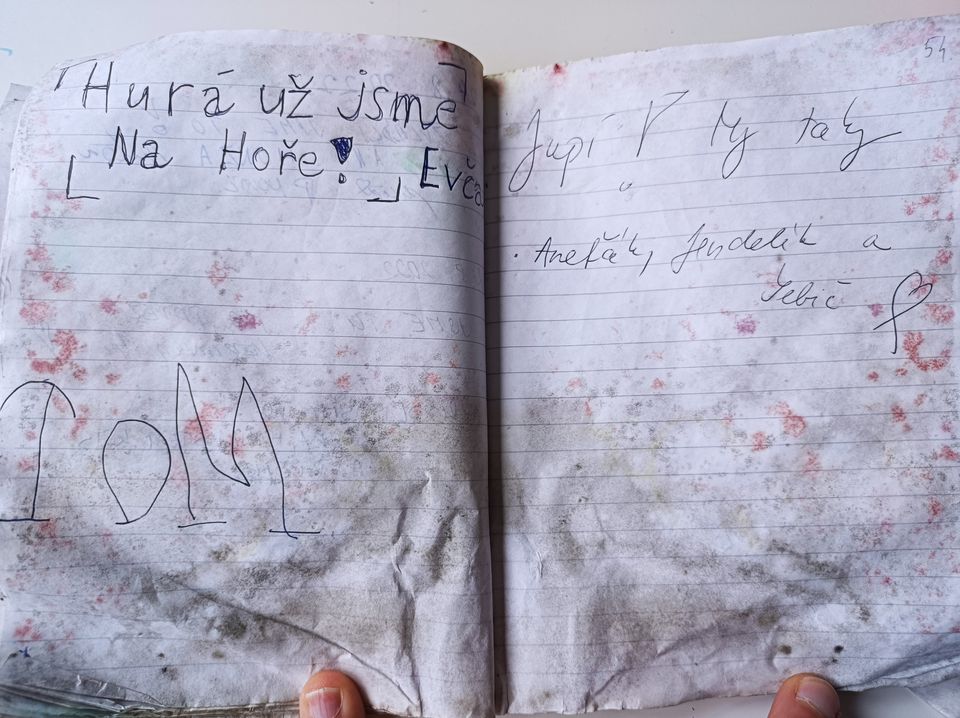 Hurá už jsme
Na Hoře!
Evča
TOM
54
Jupí! My taky
Anefák, Jendelík a
Sebič